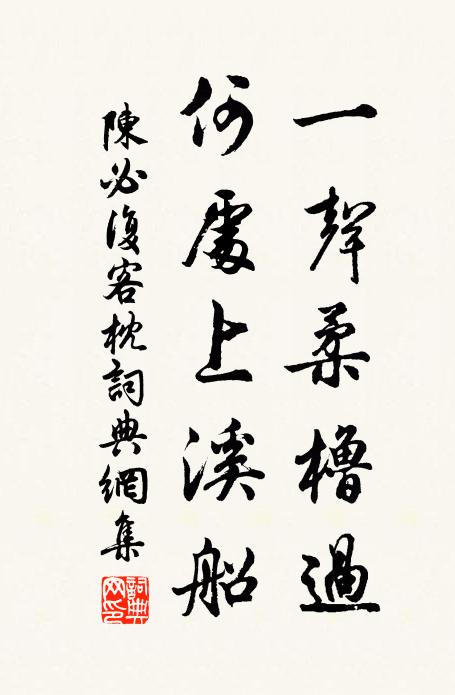 一聲柔櫓過
何處上溪船
陳必復客枕詞典網集
詞典網印